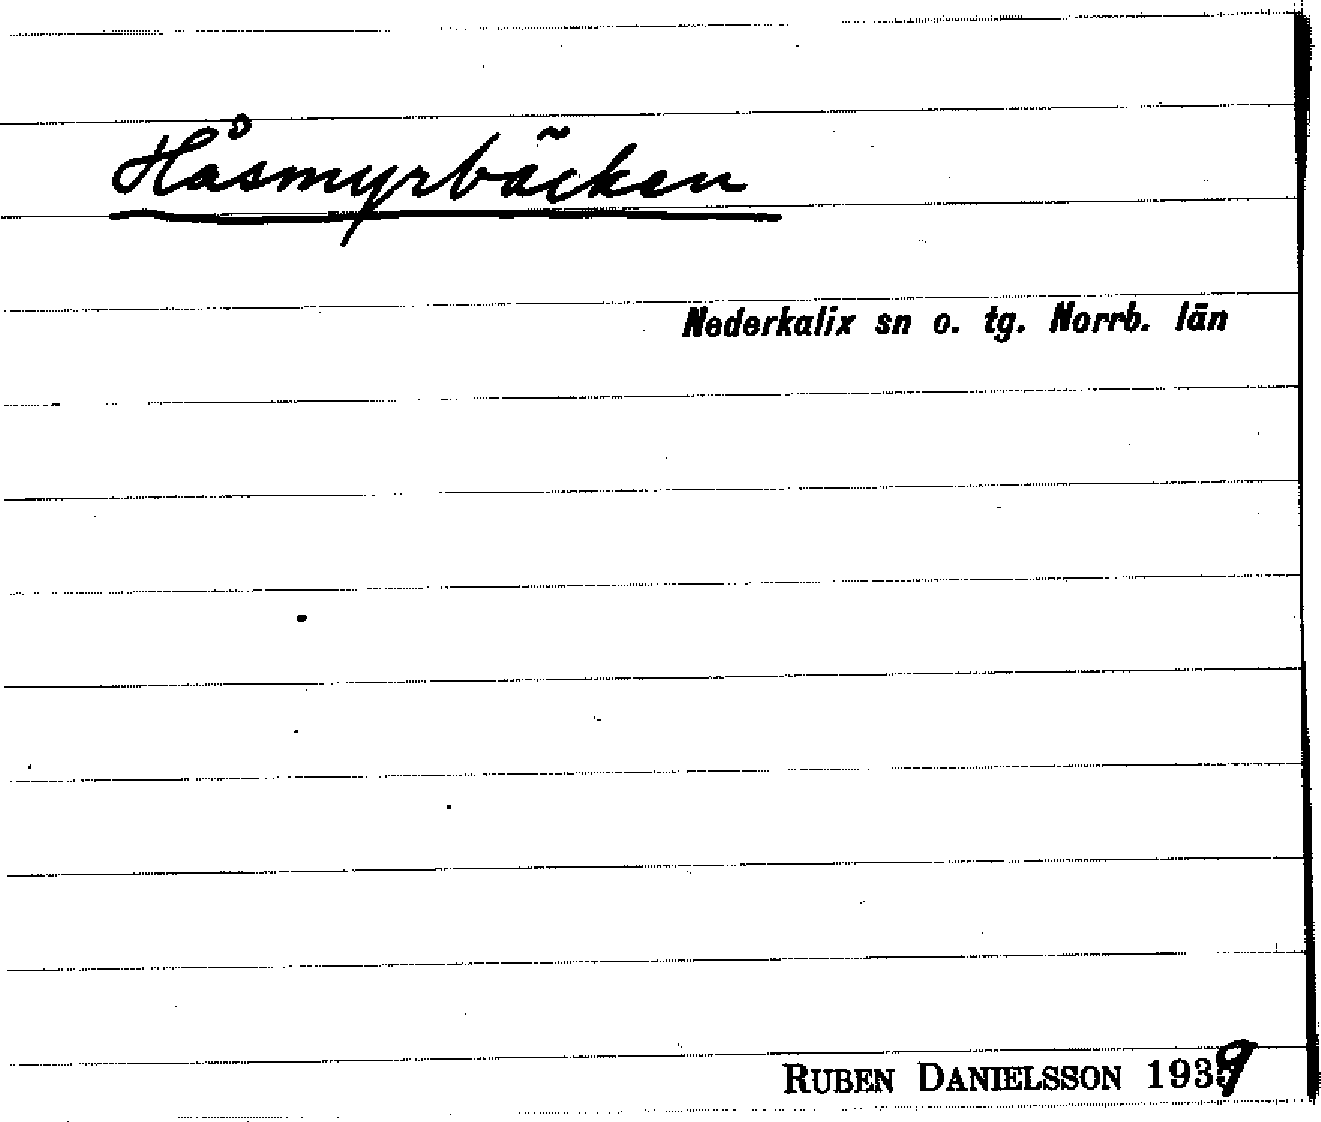 Håsmyrbäcken
Nederkalix sn o. tg. Norrb. län
RUBEN DANIELSSON 1939